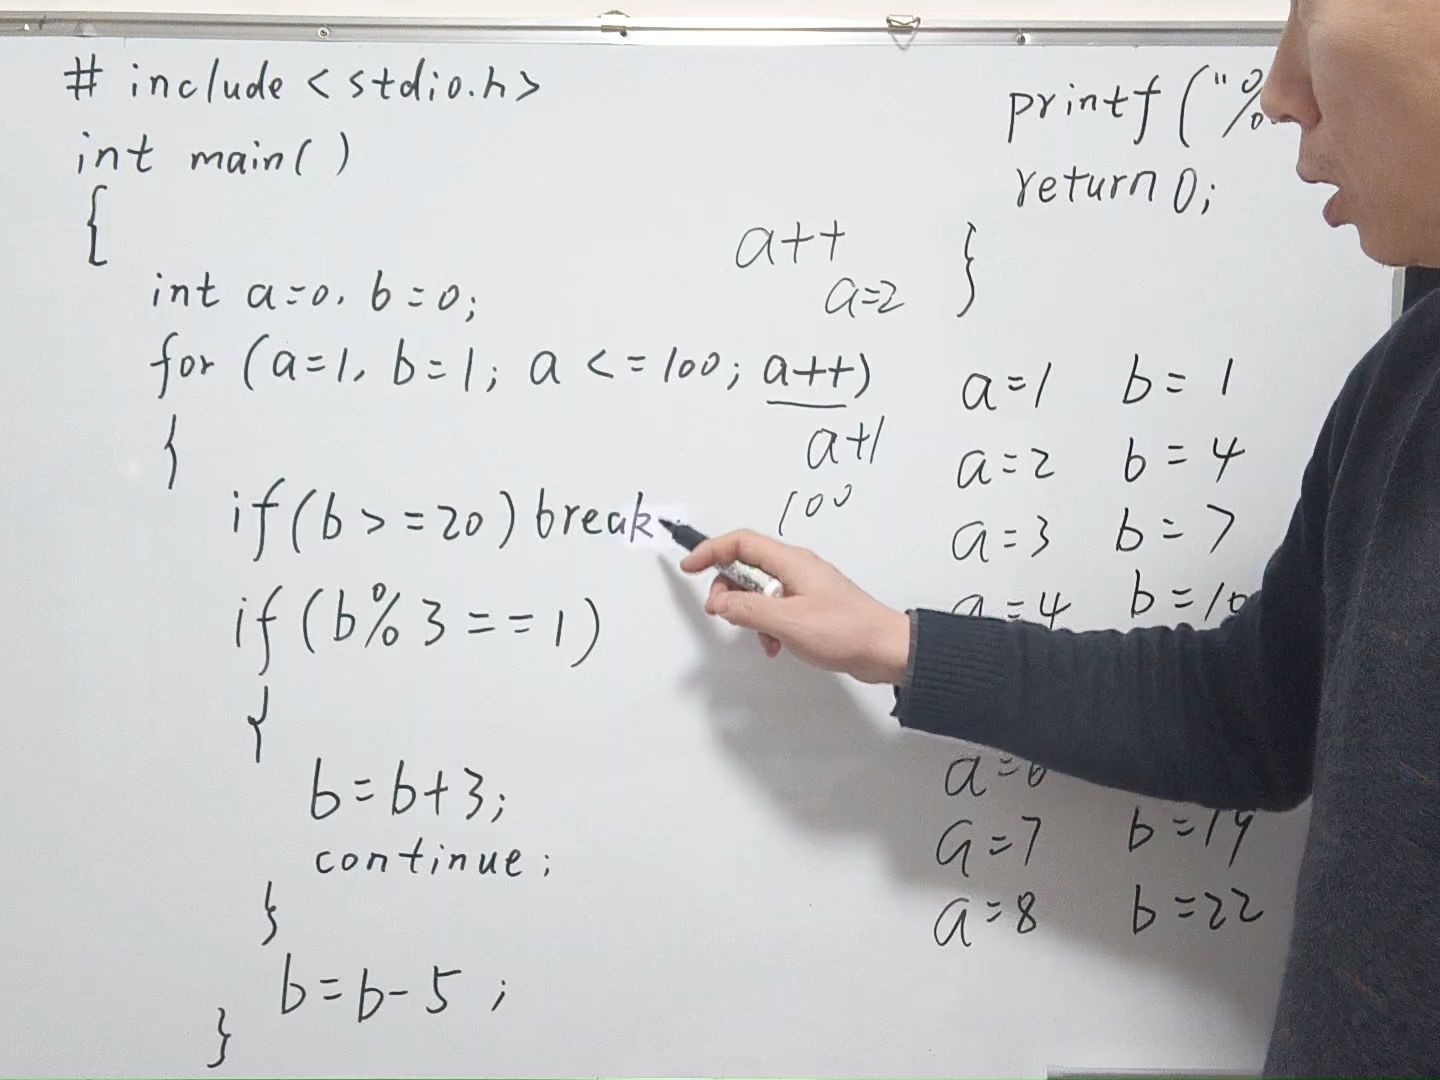 # include <stdio.h>
int main( )
{
int a=0, b=0;
for (a=1, b=1; a <=100; a++)
{
if(b >=20) break
if(b%3==1)
{
b=b+3;
continue;
}
b=b-5 ;
}
a++
a=2
a+1
100
printf("%
return 0;
}
a=1 b=1
a=2 b=4
a=3 b=7
a=4 b=10
a=6
a=7 b=19
a=8 b=22